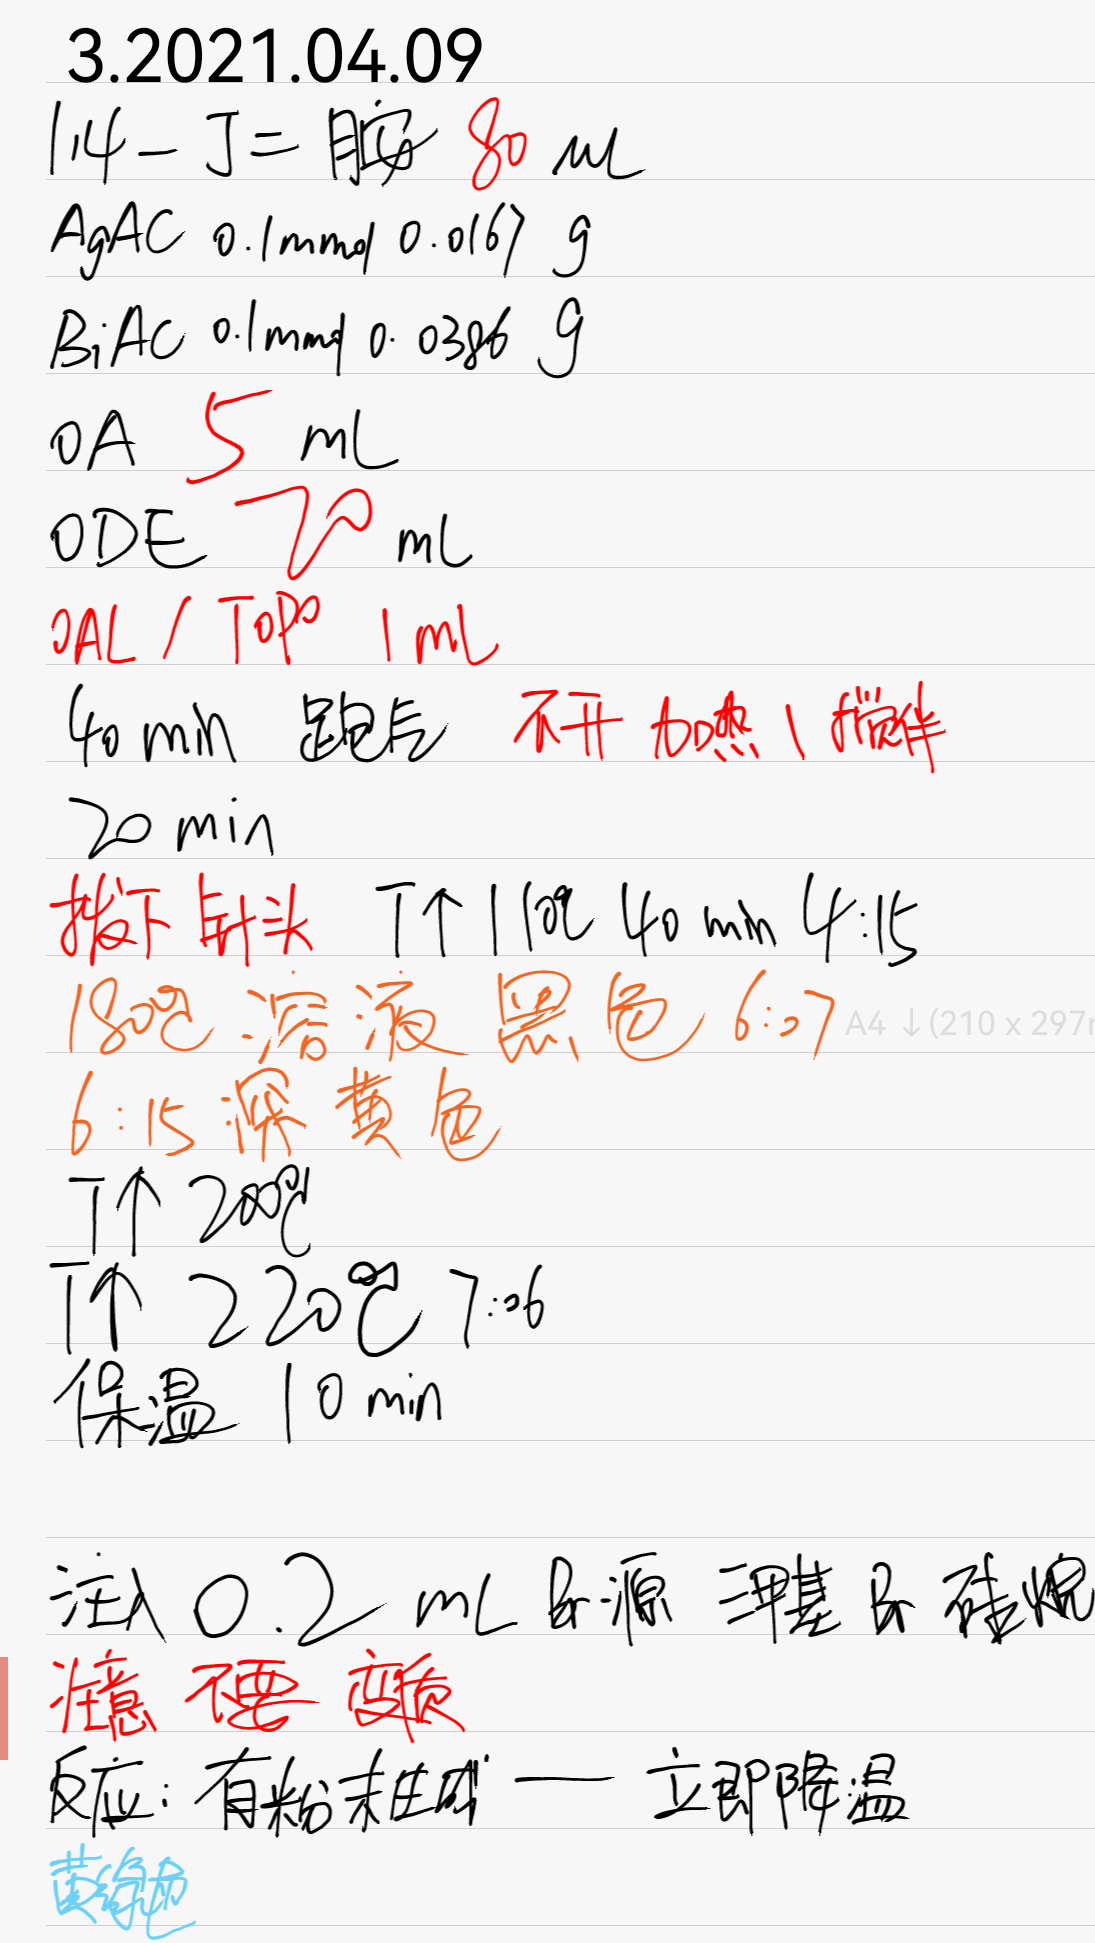 3.2021.04.09
1,4-丁二胺 80 uL
AgAC 0.1mmol 0.0167 g
BiAC 0.1mmol 0.0386 g
OA 5 mL
ODE 20 mL
OAL / TOPO 1 mL
40 min 跑气 不开加热、搅拌
20 min
拨下针头 T↑110℃ 40 min 4:15
180℃ 溶液黑色 6:07
A4 ↓(210 x 297
6:15 深黄色
T↑ 200℃
T↑ 220℃ 7:06
保温 10 min
注入 0.2 mL Br源 三甲基Br硅烷
注意 不要 变质
反应: 有粉末生成 — 立即降温
黄绿色